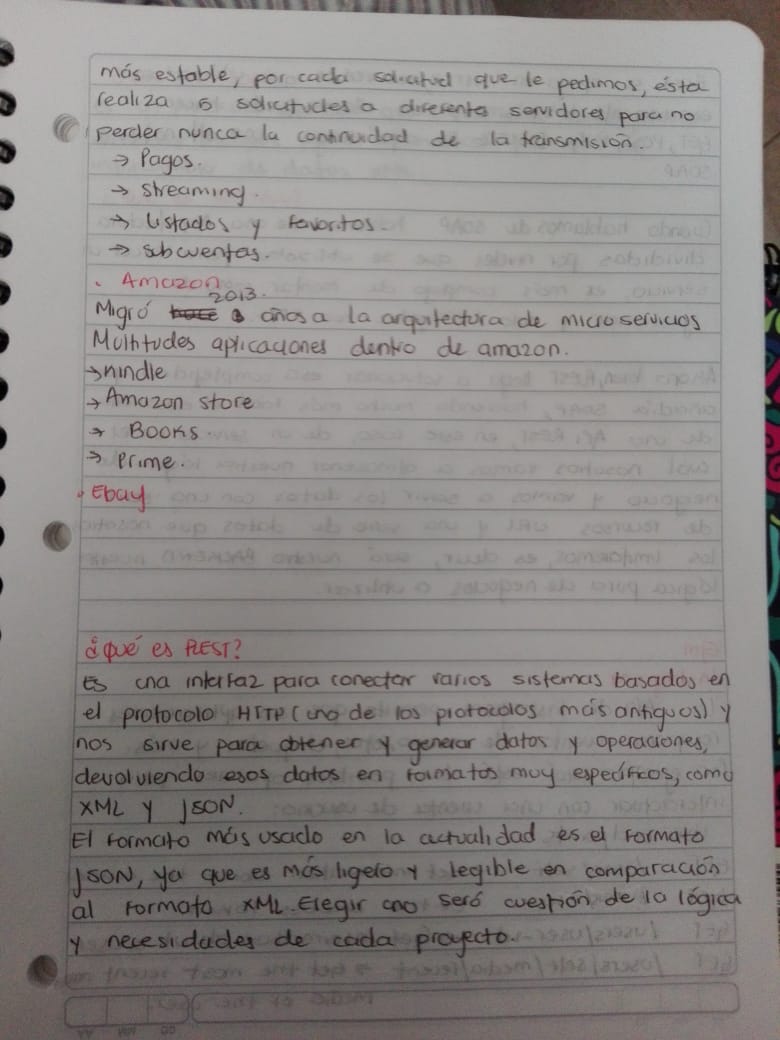 más estable, por cada solicitud que le pedimos, ésta
realiza 5 solicitudes a diferentes servidores para no
perder nunca la continuidad de la transmisión.
→ Pagos.
→ streaming.
→ Listados y favoritos.
→ subcuentas.
. Amazon
2013.
Migró años a la arquitectura de microservicios
Multitudes aplicaciones dentro de amazon.
→ kindle
→ Amazon store
→ Books.
→ Prime.
. Ebay
¿Qué es REST?
Es una interfaz para conectar varios sistemas basados en
el protocolo HTTP (uno de los protocolos más antiguos) y
nos sirve para obtener y generar datos y operaciones,
devolviendo esos datos en formatos muy específicos, como
XML y JSON.
El formato más usado en la actualidad es el formato
JSON, ya que es más ligero y legible en comparación
al formato XML. Elegir uno será cuestión de la lógica
y necesidades de cada proyecto.